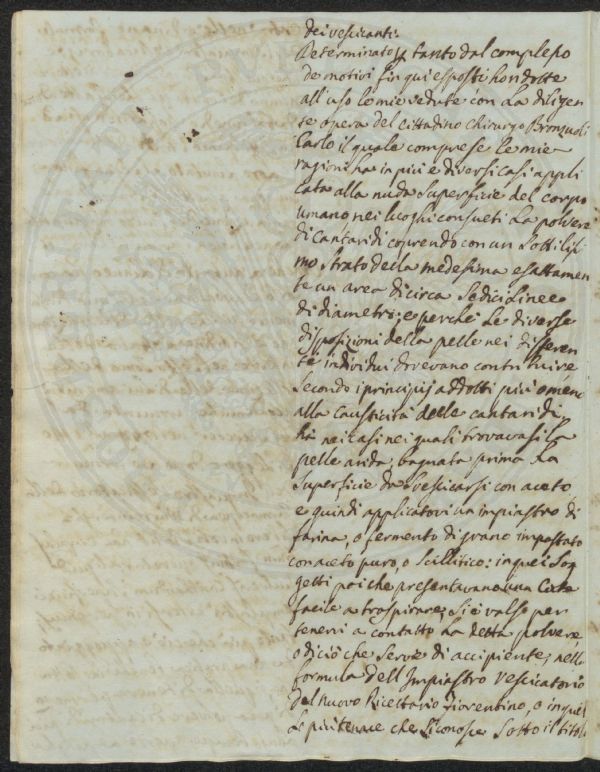 dei vescicanti.
Determinato tanto dal complesso
de motivi fin qui esposti ho ridotte
all'uso le mie vedute con la diligen
te opera del Cittadino chirurgo Bronzuoli
Carlo il quale comprese le mie
ragioni ha in più e diversi casi appli
cata alla nuda superficie del corpo
umano nei luoghi consueti la polvere
di Cantaridi coprendo con un sottilis
mo strato della medesima esattamen
te un area di circa sedici Linee
di diametro: e perché le diverse
disposizioni della pelle nei differen
ti individui dovevano contribuire
secondo i principij addotti più o meno
alla causticità delle cantaridi,
ha nei casi nei quali trovavasi la
pelle arida, bagnata prima la
superficie da vessicarsi con aceto,
e quindi applicatovi un impiastro di
farina, o fermento di grano impastato
con aceto puro, o scillitico: in quei sog
getti poi che presentavano una Cute
facile a traspirare, si è valso per
tenervi a contatto la detta polvere
o di ciò che serve di accipiente, nella
formula dell'Impiastro Vescicatorio
del Nuovo Ricettario Fiorentino, o in quel
la più tenace che si conosce sotto il titolo